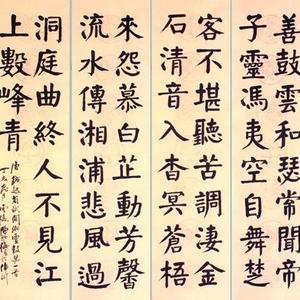 善鼓雲和瑟常聞帝
子靈馮夷空自舞楚
客不堪聽苦調淒金
石清音入杳冥蒼梧
來怨慕白芷動芳馨
流水傳湘浦悲風過
洞庭曲終人不見江
上數峰青